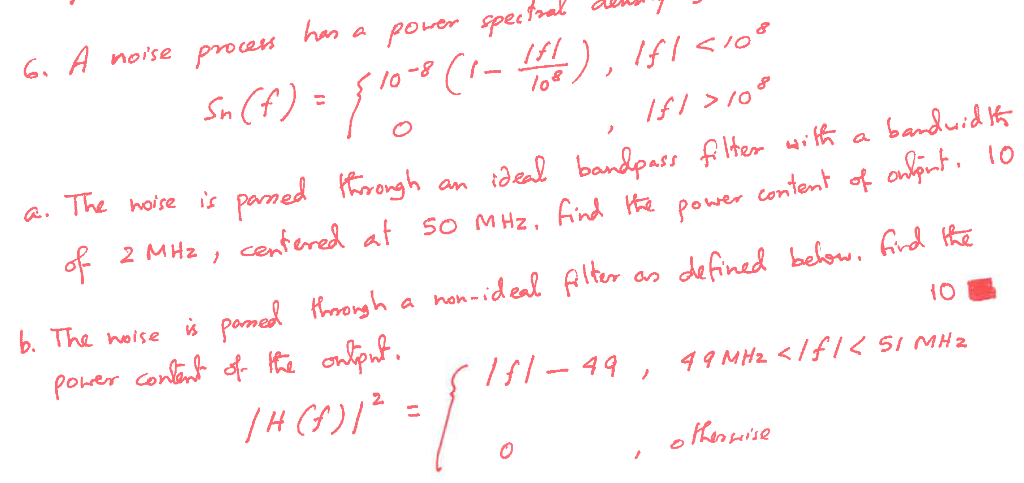 6. A noise process has a power spectral
Sn(f) = { 10^-8 (1 - |f|/10^8), |f| < 10^8
0 , |f| > 10^8
a. The noise is passed through an ideal bandpass filter with a bandwidth
of 2 MHz, centered at 50 MHz. find the power content of output. 10
b. The noise is passed through a non-ideal filter as defined below. find the
power content of the output. 10
|H(f)|^2 = { |f| - 49 , 49 MHz < |f| < 51 MHz
0 , otherwise